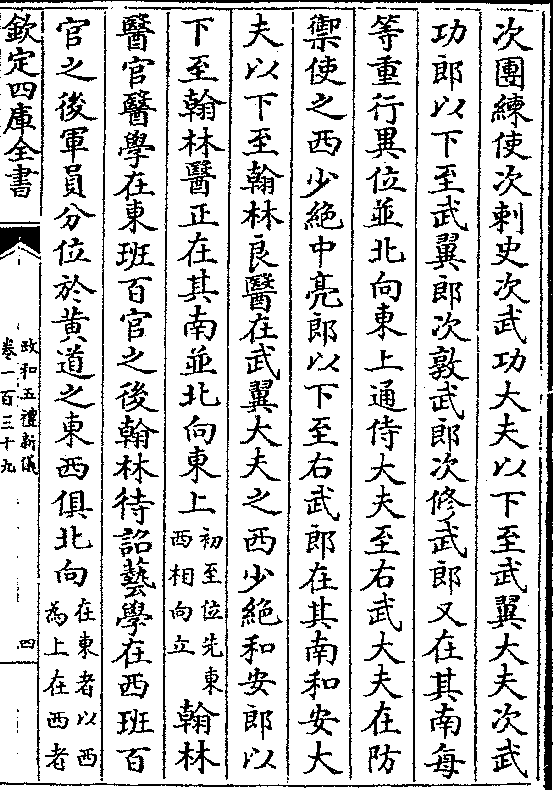 次團練使次刺史次武功大夫以下至武翼大夫次武
功郎以下至武翼郎次敦武郎次修武郎又在其南每
等重行異位並北向東上通侍大夫至右武大夫在防
禦使之西少絶中亮郎以下至右武郎在其南和安大
夫以下至翰林良醫在武翼大夫之西少絶和安郎以
下至翰林醫正在其南並北向東上初至位先東西相向立翰林
醫官醫學在東班百官之後翰林待詔藝學在西班百
官之後軍員分位於黄道之東西俱北向在東者以西為上在西者
欽定四庫全書
政和五禮新儀
卷一百三十九
四